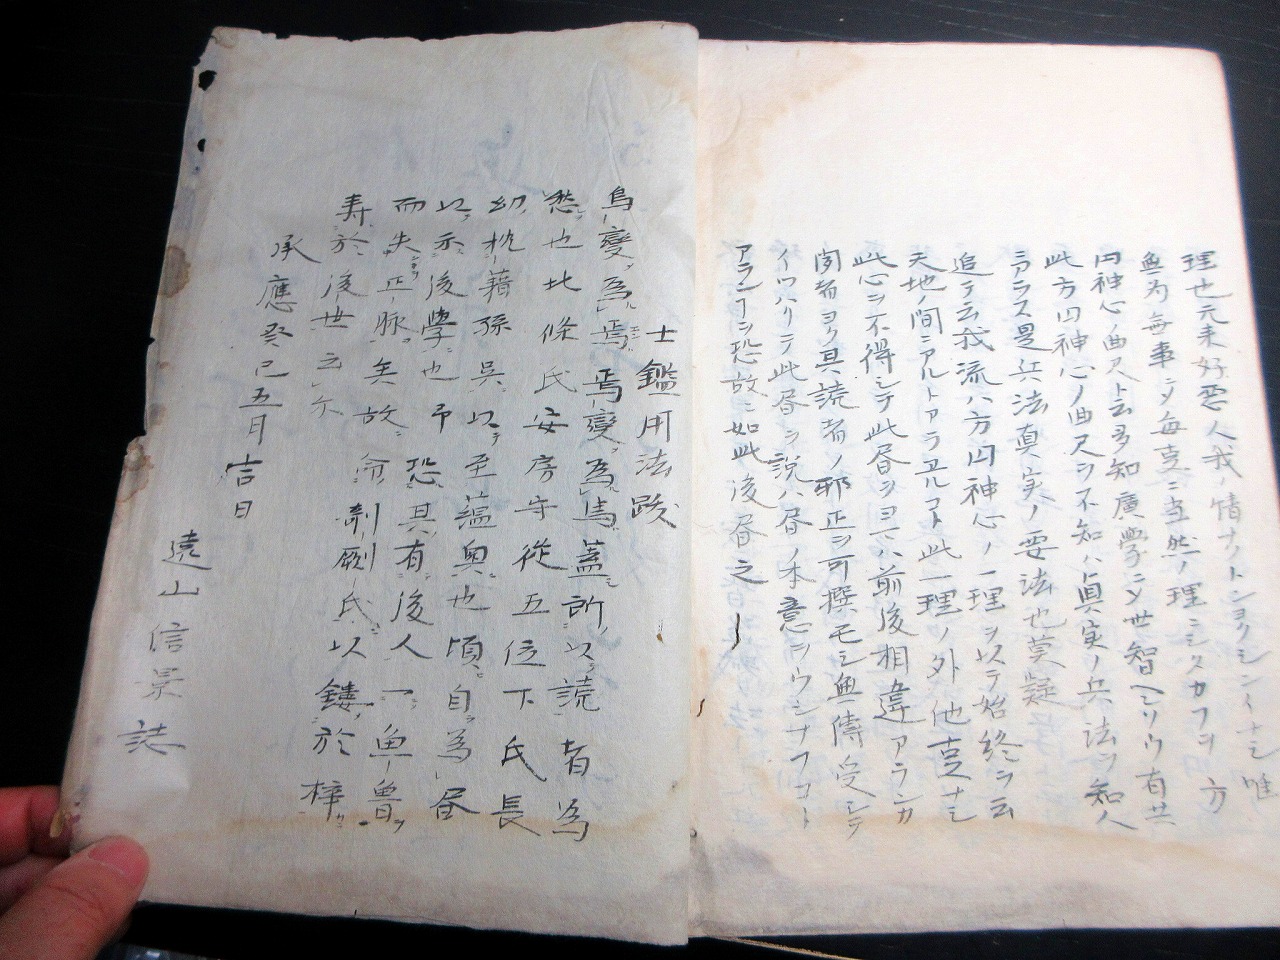 理也元来好悪人我ノ情ナクトンヨクシンイナシ唯
無為無事ニメ毎事ニ当然ノ理ニシタカフヲ方
円神心ノ曲尺ト云多知廣學ニメ世智ヘツリウ有共
此方円神心ノ曲尺ヲ不知ハ真実ノ兵法ヲ知人
ニアラス是兵法真実ノ要法也莫疑
追テ云我流ハ方円神心ノ一理ヲ以テ始終ヲ云
天地ノ間ニアルトアラユルコト此一理ノ外他事ナシ
此心ヲ不得シテ此書ヲヨミハ前後相違アランカ
聞者ヨク其読者ノ邪正ヲ可撰モシ無傳受シテ
イツハリテ此書ヲ説ハ書ノ本意ヲウシナフコト
アランコヲ恐故ニ如此後書之
士鑑用法跋
烏變為焉焉變為馬蓋所以読者為
愁也北條氏安房守從五位下氏長
幼枕藉孫呉以至蘊奥也頃自為書
以示後學也予恐其有後人一魚魯
而失正脉矣故命剞劂氏以鏤於梓
寿於後世云尓
承應癸巳五月吉日
遠山信景誌